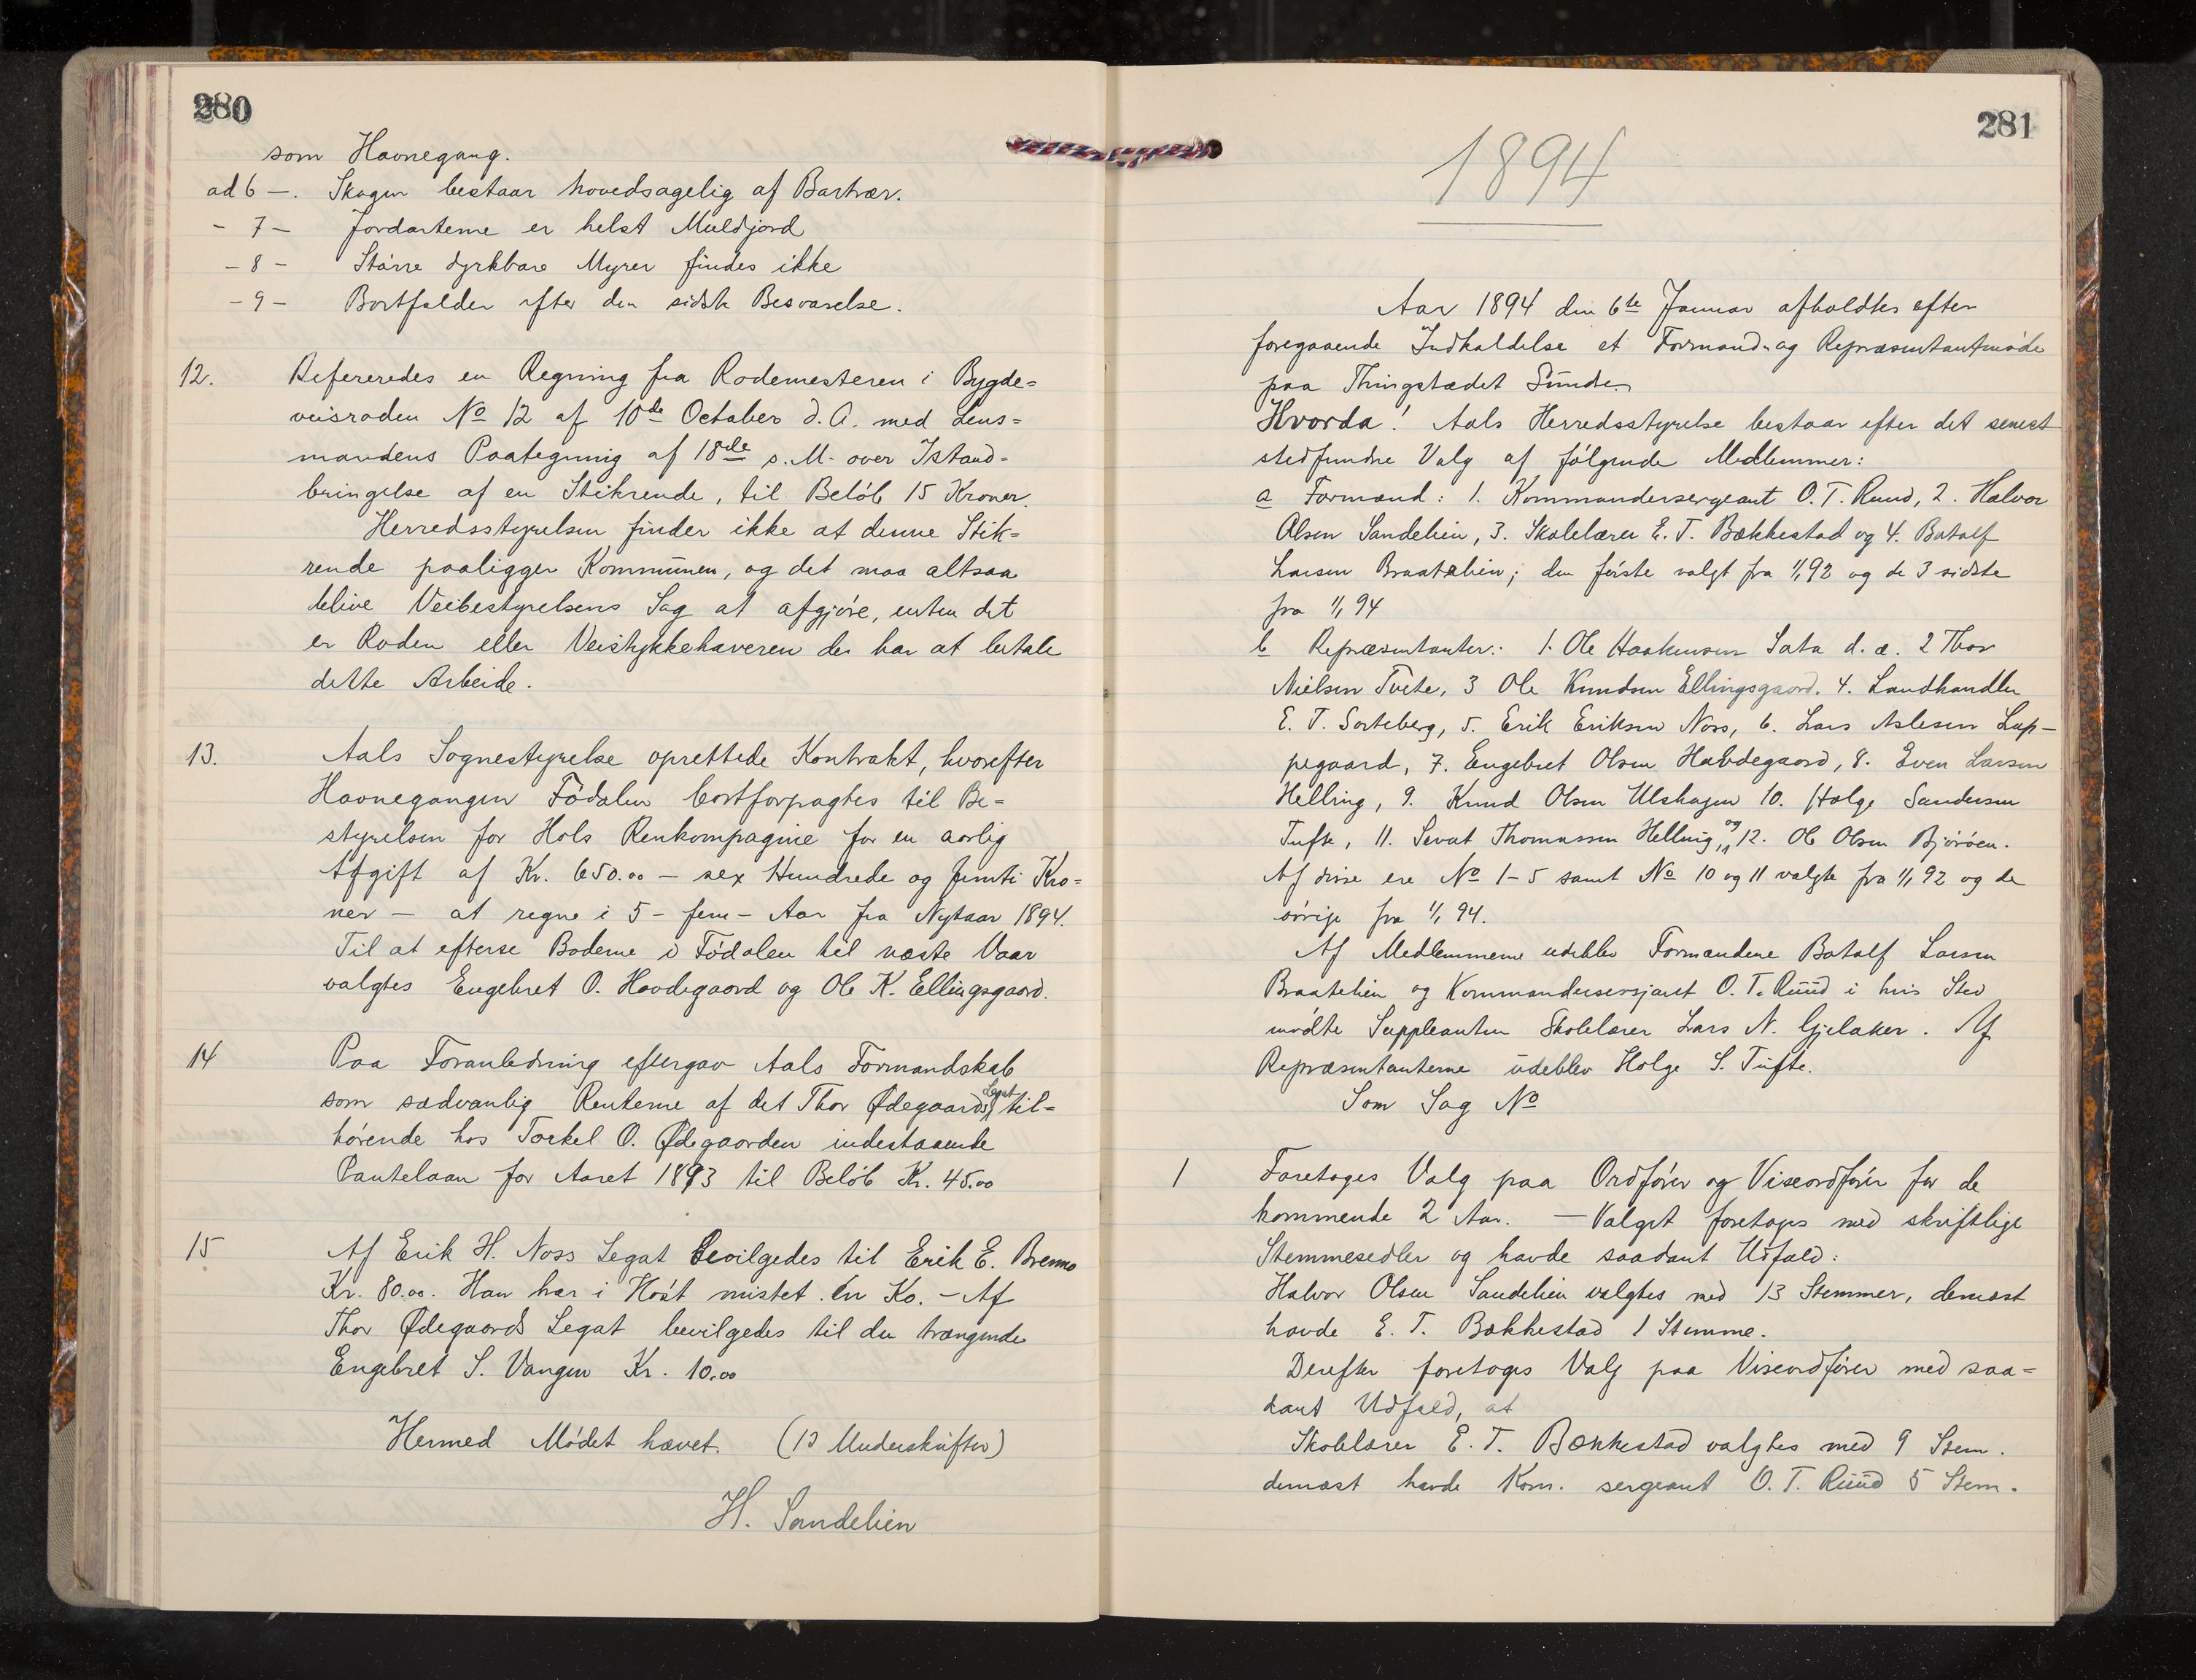 280
som Havnegang.
ad 6 —. Skogen bestaar hovedsagelig af Bartrær.
- 7 - Jordarterne er helst Muldjord
- 8 - Større dyrkbare Myrer findes ikke
- 9 - Bortfalder efter den sidste Besvarelse.
12. Refereredes en Regning fra Rodemesteren i Bygde=
veisroden No 12 af 10de October d. A. med Lens=
mandens Paategning af 18de s. M. over Istand=
bringelse af en Stikrende, til Beløb 15 Kroner.
Herredsstyrelsen finder ikke at denne Stik=
rende paaligger Kommunen, og det maa altsaa
blive Veibestyrelsens Sag at afgjøre, enten det
er Roden eller Veistykkehaveren der har at betale
dette Arbeide.
13. Aals Sognestyrelse oprettede Kontrakt, hvorefter
Havnegangen Födalen bortforpagtes til Be=
styrelsen for Hols Renkompagnie for en aarlig
Afgift af Kr. 650.00 — sex Hundrede og femti Kro=
ner — at regne i 5 - fem - Aar fra Nytaar 1894.
Til at efterse Boderne i Födalen til næste Vaar
valgtes Engebret O. Hovdegaard og Ole K. Ellingsgaard.
14 Paa Foranledning eftergav Aals Formandskab
som sædvanlig Renterne af det Thor Ødegaards Legat til=
hørende hos Torkel O. Ødegaarden indestaaende
Pantelaan for Aaret 1893 til Beløb Kr. 45.00
15 Af Erik H. Noss Legat bevilgedes til Erik E. Brenno
Kr. 80.00. Han har i Høst mistet en Ko. — Af
Thor Ødegaards Legat bevilgedes til den trængende
Engebret S. Vangen Kr. 10.00
Hermed Mødet hævet. (13 Underskrifter)
H. Sandelien
281
1894
Aar 1894 den 6te Januar afholdtes efter
foregaaende Indkaldelse et Formand- og Repræsentantmøde
paa Thingstædet Sundre
Hvorda! Aals Herredsstyrelse bestaar efter det senest
stedfundne Valg af følgende Medlemmer:
a Formænd: 1. Kommandersergeant O. T. Ruud, 2. Halvor
Olsen Sandelien, 3. Skolelærer E. T. Bækkestad og 4. Botolf
Larsen Braatelien; den første valgt fra 1/1 92 og de 3 sidste
fra 1/1 94
b Repræsentanter: 1. Ole Haakensen Sata d. æ. 2 Thor
Nielsen Tveite, 3 Ole Knudsen Ellingsgaard. 4. Landhandler
E. T. Sorteberg, 5. Erik Eriksen Noss, 6. Lars Aslesen Lap-
pegaard, 7. Engebret Olsen Hovdegaard, 8. Even Larsen
Helling, 9. Knud Olsen Ulshagen 10. Holge Sandersen
Tufte, 11. Sevat Thomassen Helling, og 12. Ole Olsen Bjøröen.
Af disse ere No 1-5 samt No 10 og 11 valgte fra 1/1 92 og de
øvrige fra 1/1 94.
Af Medlemmerne udeblev Formændene Botolf Larsen
Braatelien og Kommandersersjant O. T. Ruud i hvis Sted
mødte Suppleanten Skolelærer Lars N. Gjelaker. Af
Repræsentanterne udeblev Holge S. Tufte.
Som Sag No
1 Foretoges Valg paa Ordfører og Viseordfører for de
kommende 2 Aar. — Valget foretoges med skriftlige
Stemmesedler og havde saadant Udfald:
Halvor Olsen Sandelien valgtes med 13 Stemmer, dernæst
havde E. T. Bækkestad 1 Stemme.
Derefter foretoges Valg paa Viseordfører med saa=
dant Udfald, at
Skolelærer E. T. Bækkestad valgtes med 9 Stem.
dernæst havde Kom. sergeant O. T. Ruud 5 Stem.